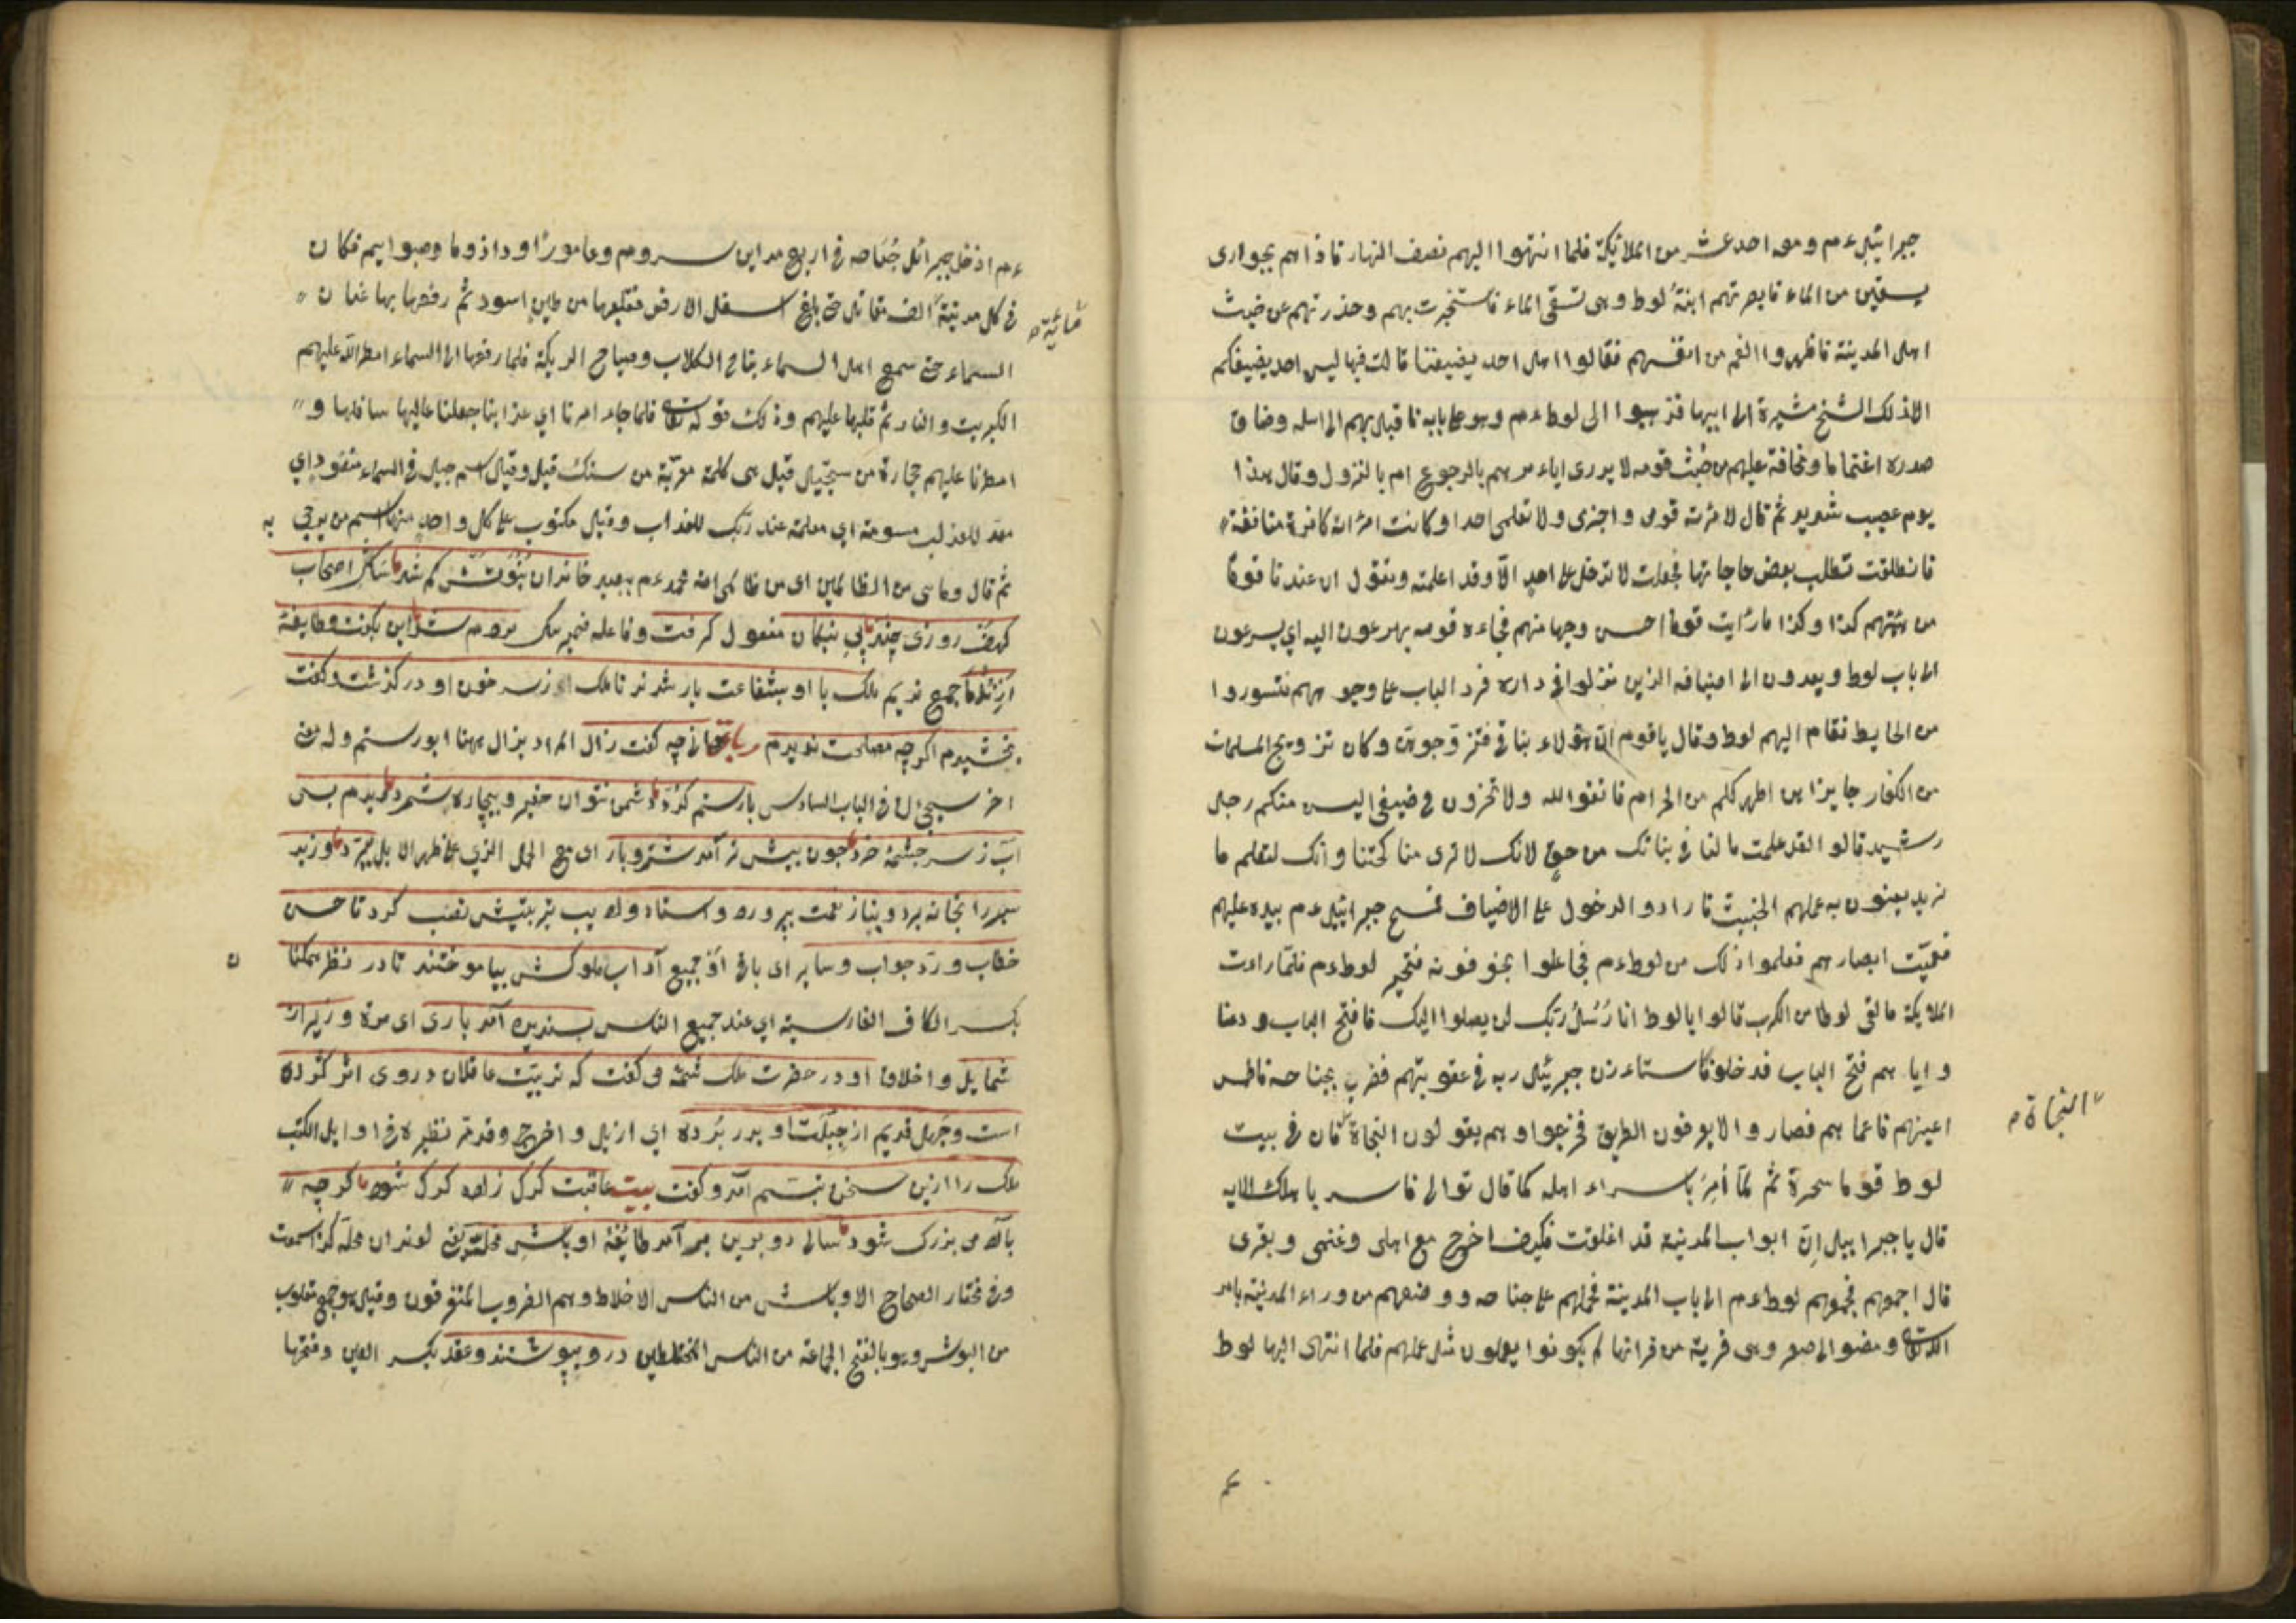 جبرائيل عم ومعه احد عشر من الملائيكة فلما انتهوا اليهم نصف النهار فاذا هم بجوارى
يسقين من الماء فابصرتهم ابنة لوط وهى تسقى الماء فاستخبرت بهم وحذرتهم عن خبث
اهل المدينة فاظهروا الغم من انفسهم فقالوا اهل احد يضيفنا قالت فيها ليس احد يضيفكم
الا ذلك الشيخ مشيرة الى ابيها فذهبوا الى لوط عم وهو على بابه فاقبل بهم الى اهله وضاق
صدره اغتماما ومخافة عليهم من خبث قومه لا يدرى اياءمرهم بالرجوع ام بالنزول وقال هذا
يوم عصيب شديد ثم قال لامرءته قومى واخبزى ولا تعلمى احدا وكانت امرءته كافرة منافقة
فانطلقت تطلب بعض حاجاتها فجعلت لا تدخل على احد الّا وقد اعلمته وتقول ان عندنا قوما
من هيئتهم كذا وكذا ما رأيت قوما احسن وجها منهم فجاءه قومه يهرعون اليه اى يسرعون
الى باب لوط ويعدون الى اضيافه الذين نزلوا فى داره فرد الباب على وجوههم فتسوروا
من الحايط فقام اليهم لوط وقال ياقوم انّ هؤلاء بناتى فتزوّجوهنّ وكان تزويج المسلمات
من الكفار جايزا هن اطهر لكم من الحرام فاتقوا الله ولا تخزون فى ضيفى اليس منكم رجل
رشيد قالو القد علمت ما لنا فى بناتك من حق لانك لا ترى مناكحتنا وانك لتعلم ما
نريد يعنون به عملهم الخبيث فارادو الدخول على الاضياف فمسح جبرائيل عم بيده عليهم
فعميّت ابصارهم فعلموا ذلك من لوط عم فجاعلوا يخوفونه فتحير لوط عم فلمّا راءت
الملايكة ما لقى لوطا من الكرب قالوا يا لوط انا رُسُلُ ربّك لن يصلوا اليك فافتح الباب ودعنا
واياهم فتح الباب فدخلو فاستاءذن جبرئيل ربه فى عقوبتهم فضرب بجناحه فاطمس
اعينهم فاعماهم فصاروا لا يعرفون الطريق فخرجوا وهم يقولون النجاة فان فى بيت
"النجاة م
لوط قوما سحرة ثم لمّا أُمِرَ باسراء اهله كما قال تعالى فاسر باهلك الايه
قال ياجبرائيل اِنّ ابواب المدينة قد اغلقت فكيف اخرج مع اهلى وغنمى وبقرى
قال اجمعهم فجمعهم لوط عم الى باب المدينة فحملهم على جناحه ووضعهم من وراء المدينة بامر
الله تعالى ومضوا الى صعر وهى قرية من قراتها لم يكونوا يعملون مثل عملهم فلما انتهى اليها لوط
عم ادخل جبرائل جُنَاحه فى اربع مداين سدوم وعامورًا وداذوما وصبوايم فكان
فى كل مدينة الف مقاتل حتى بلغ اسفل الارض فقلعها من طين اسود ثم رفعها بها عنان
السماء حتى سمع اهل السماء نباح الكلاب وصياح الديكة فلما رفعها الى السماء امطر الله عليهم
الكبريت والنار ثم قلبها عليهم وذلك قوله تعالى فلما جاء امرنا اي عذابنا جعلنا عاليها سافلها و
امطرنا عليهم حجارة من سجّيل قيل هى كلمة معرّبة من سنك وقيل اسم جبل فى السماء منضود اي
معد للعذاب مسومة اي معلمة عند ربّك للعذاب وقيل مكتوب على كل واحد منها اسم من يرمى به
ثم قال وما هى من الظالمين اى من ظالمى امة محمد عم ببعيد خاندان نبوّتش كم شد سك اصحاب
كهف روزى چند پى نيكان مفعول كرفت وفاعله ضمير سك مردم شد اين بكفت وطايفة
از ندماء جمع نديم ملك با او بشفاعت يار شدند تا ملك از سر خون او در كذشت وكفت
بخشيدم اكرچه مصلحت نديدم رباعى دانى چه كفت زال المراد بزال ههنا ابو رستم وله معنى
اخر سيجئ ان فى الباب السادس با رستم كرد دشمن نتوان حقير وبيچاره شمرد ديديم بسى
آب ز سر چشمهٔ خرد چون بيش تر آمد شتر وبار اى مع الحمل الذي على ظهر الابل ببرد وزير
پسر را بخانه برد وبناز نعمت بپرورد واستاد واديب بتربيتش نصب كرد تا حسن
خطاب وردّ جواب وسايراى باقى او جميع آداب ملوكش بياموختند تا در نظر همكنان
بكسر الكاف الفارسية اى عند جميع الناس پسنديده آمد بارى اى مرة وزير از
شمايل واخلاق او در حضرت ملك شمّه مى كفت كه تربيت عاقلان در وى اثر كرده
است وجهل قديم از جبلّت او بدر برده اي ازيل واخرج وقد مر نظيره فى اوايل الكتب
ملك را ازين سخن تبسّم آمد وكفت بيت عاقبت كرك زاده كرك شود كرچه
با آدمى بزرك شود سالى دو برين بر آمد طايفة اوباش محلت يعنى لوندان محله كذا سمعت
وفى مختار الصحاح الاوباش من الناس الاخلاط وهم الضروب المتفرقون وقيل هو جمع مقلوب
من البوش وهو بالفتح الجماعة من الناس المختلطين درو پيوستند وعقد بكسر العين وفتحها